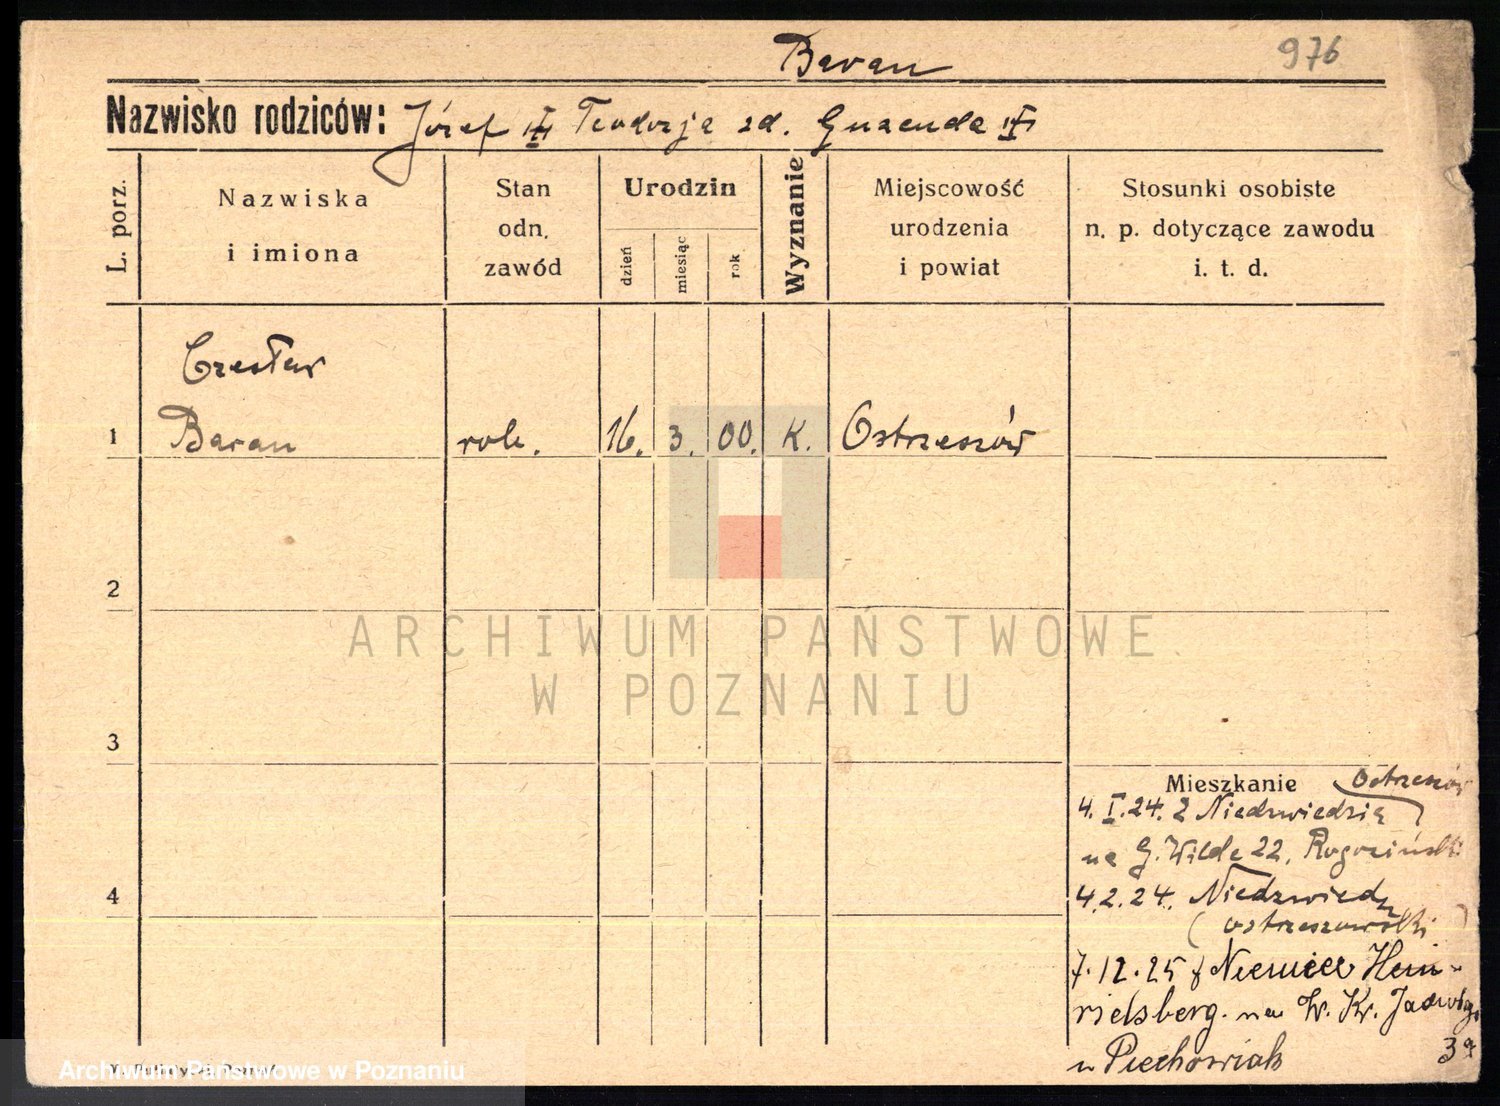 Baran
976
Nazwisko rodziców: Józef Teodozja zd.
L. porz.
Nazwiska
i imiona
Stan
odn.
zawód
Urodzin
dzień
miesiąc
rok
Wyznanie
Miejscowość
urodzenia
i powiat
Stosunki osobiste
n. p. dotyczące zawodu
i. t. d.
Czesław
1 Baran rob. 16. 3. 00. K. Ostrzeszów
2
ARCHIWUM PAŃSTWOWE
W POZNANIU
3
Mieszkanie Ostrzeszów
4. I. 24. z Niedzwiedzia
na G. Wilde 22, Rogoziński
4
4.2.24. Niedzwiedz
(ostrzeszowski)
7.12.25 Niemiec Hein-
na W. Kr. Jadwigi
u Piechowiak 39
Archiwum Państwowe w Poznaniu